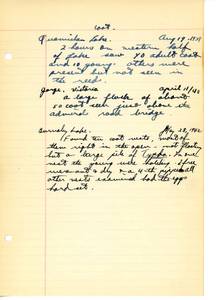 Coot.
Quamichan Lake. Aug 19. 1931
2 hours on western half
of lake saw 40 adult coots
and 10 young. others were
present but not seen in
the reeds.
Gorge, Victoria April 11/40
a large flock of about
50 coot seen just above the
admiral road bridge
Swan Lake. May 28, 1942
Found ten coot nests, most of
them right in the open - not floating
but on a large pile of Typha. In one
nest the young were hatching
and a 4th
other nests examined had the eggs
hard set.